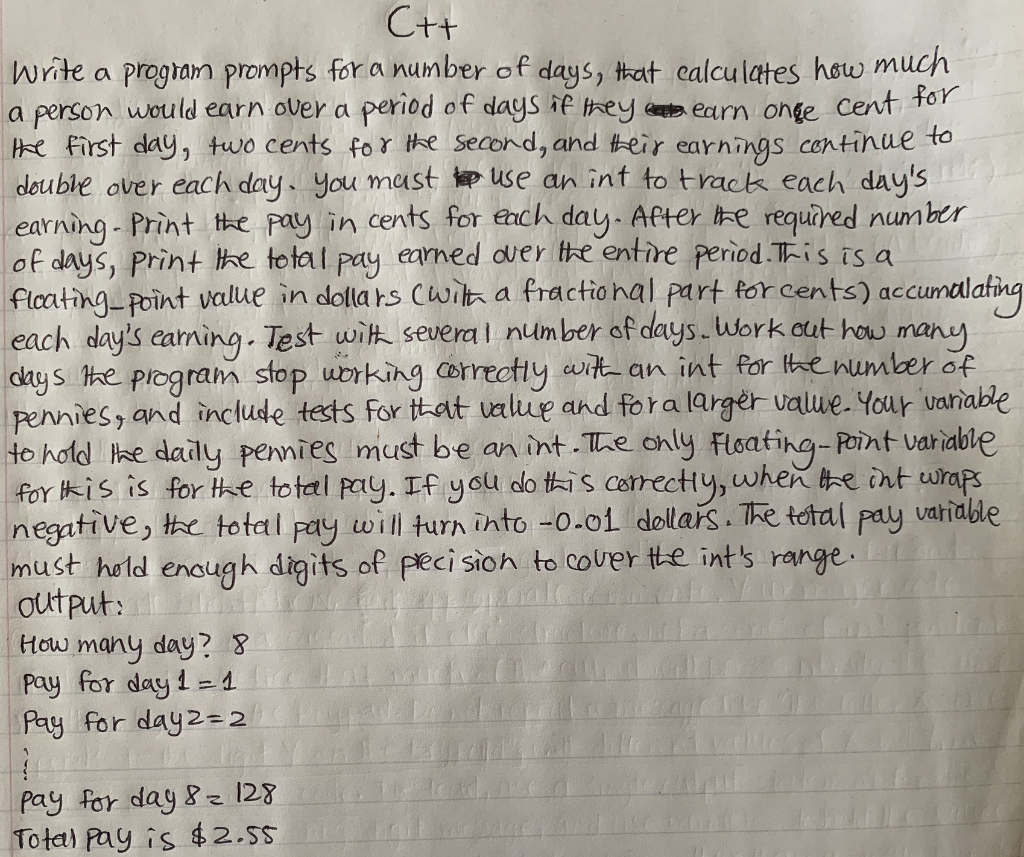 C++
Write a program prompts for a number of days, that calculates how much
a person would earn over a period of days if they earn one cent for
the first day, two cents for the second, and their earnings continue to
double over each day. You must use an int to track each day's
earning. Print the pay in cents for each day. After the required number
of days, print the total pay earned over the entire period. This is a
floating_point value in dollars (with a fractional part for cents) accumalating
each day's earning. Test with several number of days. Work out how many
days the program stop working correctly with an int for the number of
pennies, and include tests for that value and for a larger value. Your variable
to hold the daily pennies must be an int. The only Floating-Point variable
for this is for the total pay. If you do this correctly, when the int wraps
negative, the total pay will turn into -0.01 dollars. The total pay variable
must hold enough digits of precision to cover the int's range.
output:
How many day? 8
Pay for day 1 = 1
Pay for day 2 = 2
⋮
Pay for day 8 = 128
Total Pay is $2.55